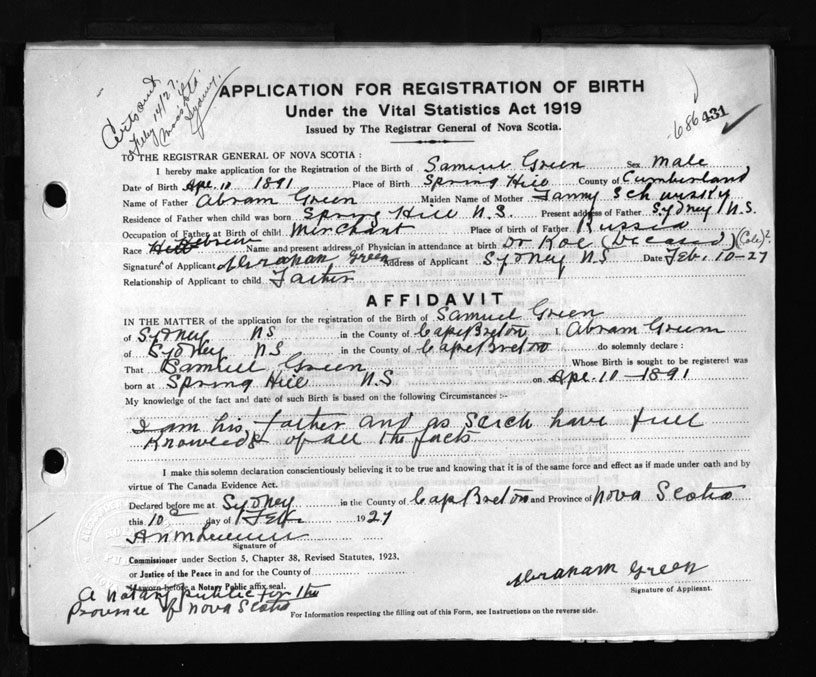 Certs sent
July 14/27.
Sydney.
APPLICATION FOR REGISTRATION OF BIRTH
Under the Vital Statistics Act 1919
Issued by The Registrar General of Nova Scotia.
686 431
TO THE REGISTRAR GENERAL OF NOVA SCOTIA :
I hereby make application for the Registration of the Birth of Samuel Green Sex Male
Date of Birth Apl. 10 1891 Place of Birth Spring Hill County of Cumberland
Name of Father Abram Green Maiden Name of Mother Fanny
Residence of Father when child was born Spring Hill N.S. Present address of Father Sydney N.S.
Occupation of Father at Birth of child Merchant Place of birth of Father Russia
Race Hebrew Name and present address of Physician in attendance at birth Dr Koe (Decased) (Cole)?
Signature of Applicant Abraham Green Address of Applicant Sydney NS Date Feb. 10-27
Relationship of Applicant to child Father
AFFIDAVIT
IN THE MATTER of the application for the registration of the Birth of Samuel Green
of Sydney NS in the County of Cape Breton I, Abram Green
of Sydney NS in the County of Cape Breton do solemnly declare :
That Samuel Green Whose Birth is sought to be registered was
born at Spring Hill NS on Apl. 10-1891
My knowledge of the fact and date of such Birth is based on the following Circumstances :-
I am his father and as such have full
Knowledg of all the facts
I make this solemn declaration conscientiously believing it to be true and knowing that it is of the same force and effect as if made under oath and by
virtue of The Canada Evidence Act.
Declared before me at Sydney in the County of Cape Breton and Province of Nova Scotia
this 10 day of Feb. 1927
Signature of
Commissioner under Section 5, Chapter 38, Revised Statutes, 1923,
or Justice of the Peace in and for the County of
If sworn before a Notary Public affix seal.
A notary public for the
Province of Nova Scotia
Abraham Green
Signature of Applicant.
For Information respecting the filling out of this Form, see Instructions on the reverse side.